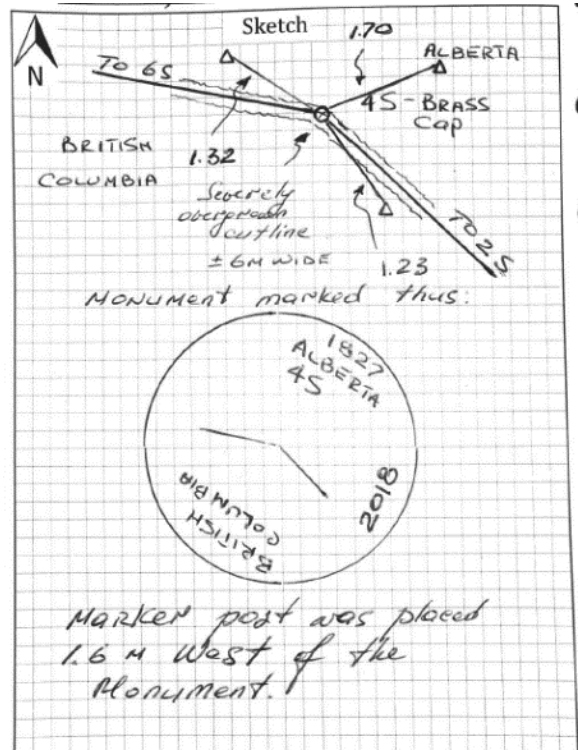 Sketch
N
TO 6S
1.70
ALBERTA
4S - BRASS
CAP
BRITISH
COLUMBIA
1.32
Severely
overgrown
cutline
± 6M WIDE
1.23
TO 2S
MONUMENT marked thus:
1827
ALBERTA
4S
2018
BRITISH
COLUMBIA
Marker post was placed
1.6 M West of the
Monument.